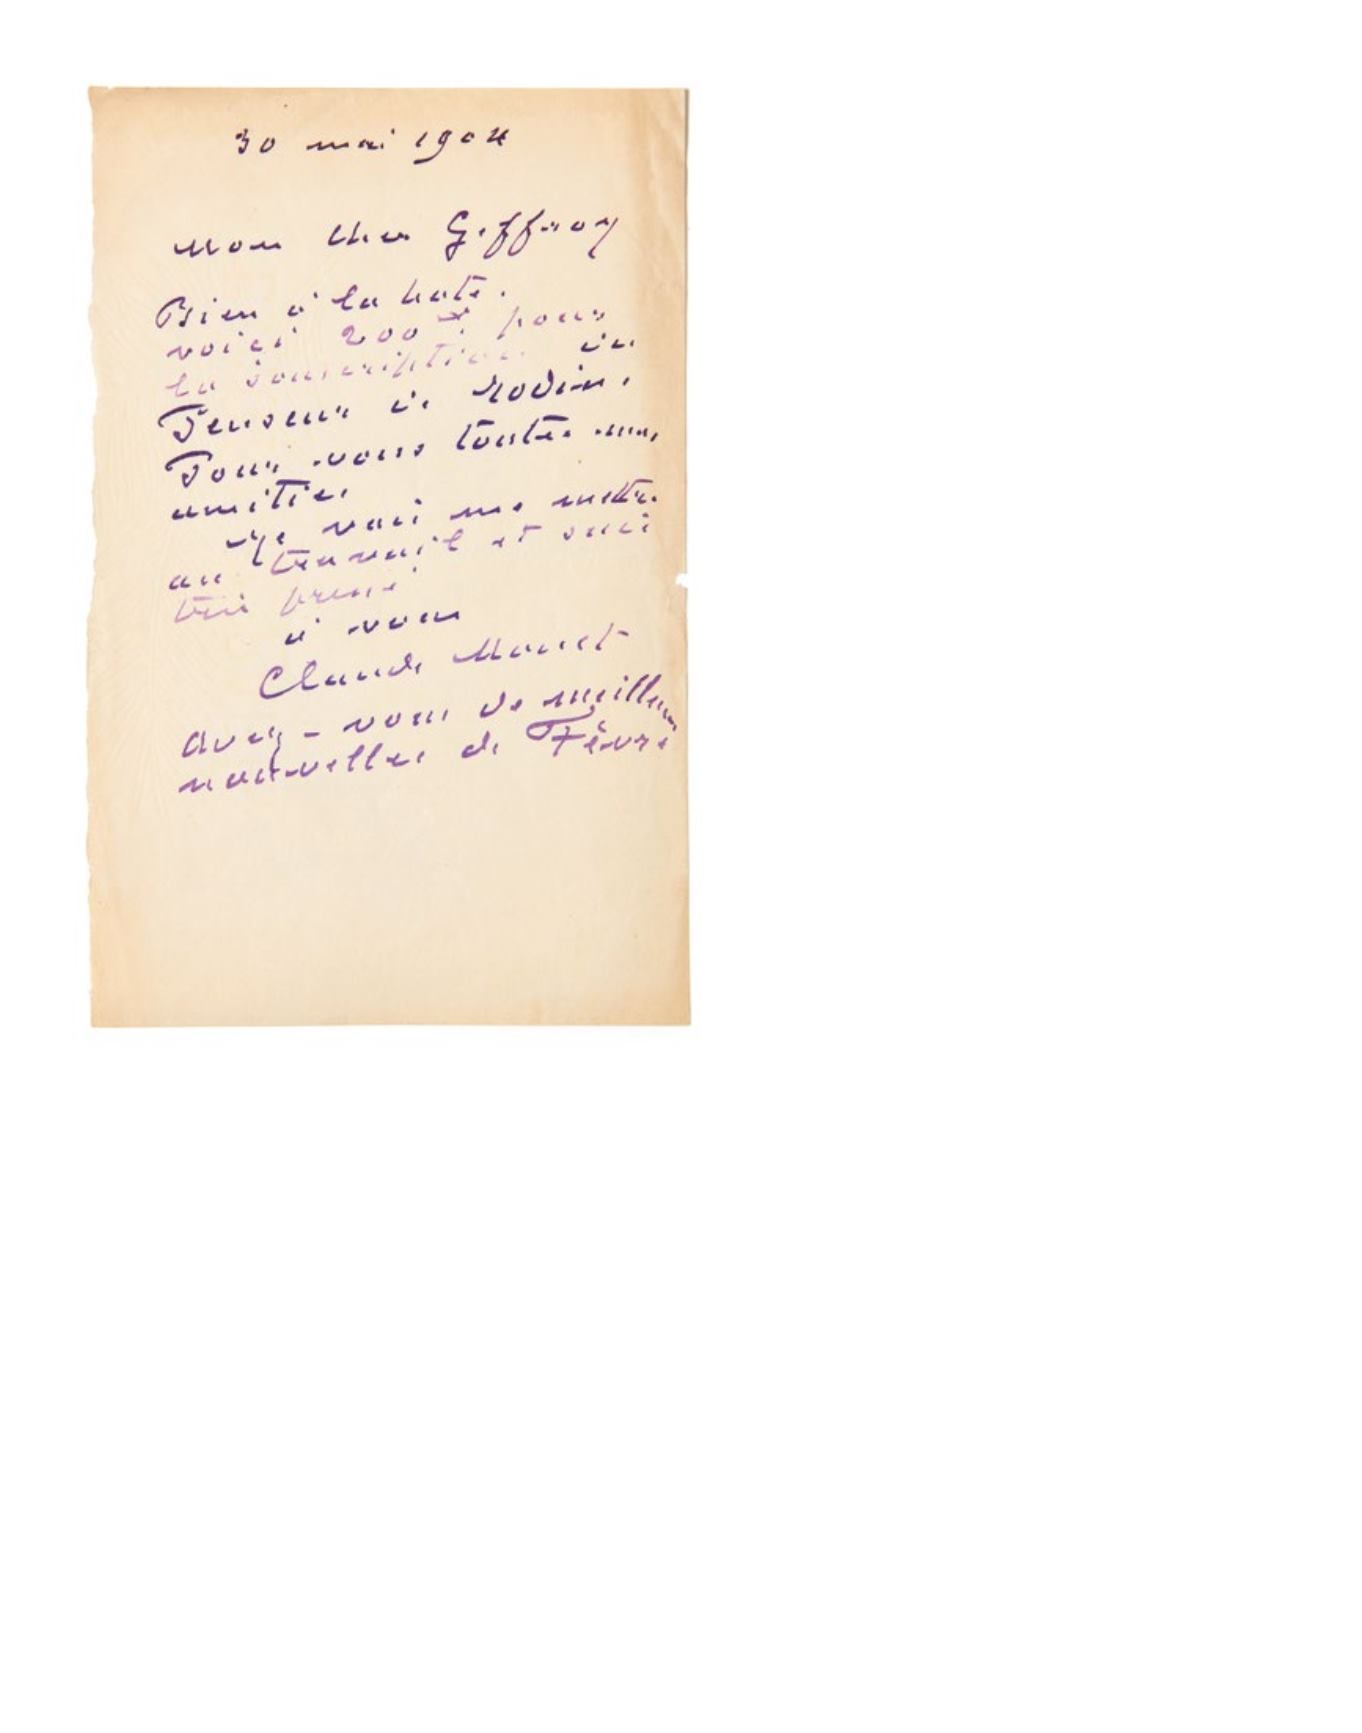 30 mai 1904
Mon cher Geffroy
Bien à la hate.
voici 200 F pour
la souscription du
Penseur de Rodin.
Pour vous toute mon
amitié.
Je vais me mettre
au travail et suis
très pressé
à vous
Claude Monet
Avez-vous de meilleures
nouvelles de Fèvre